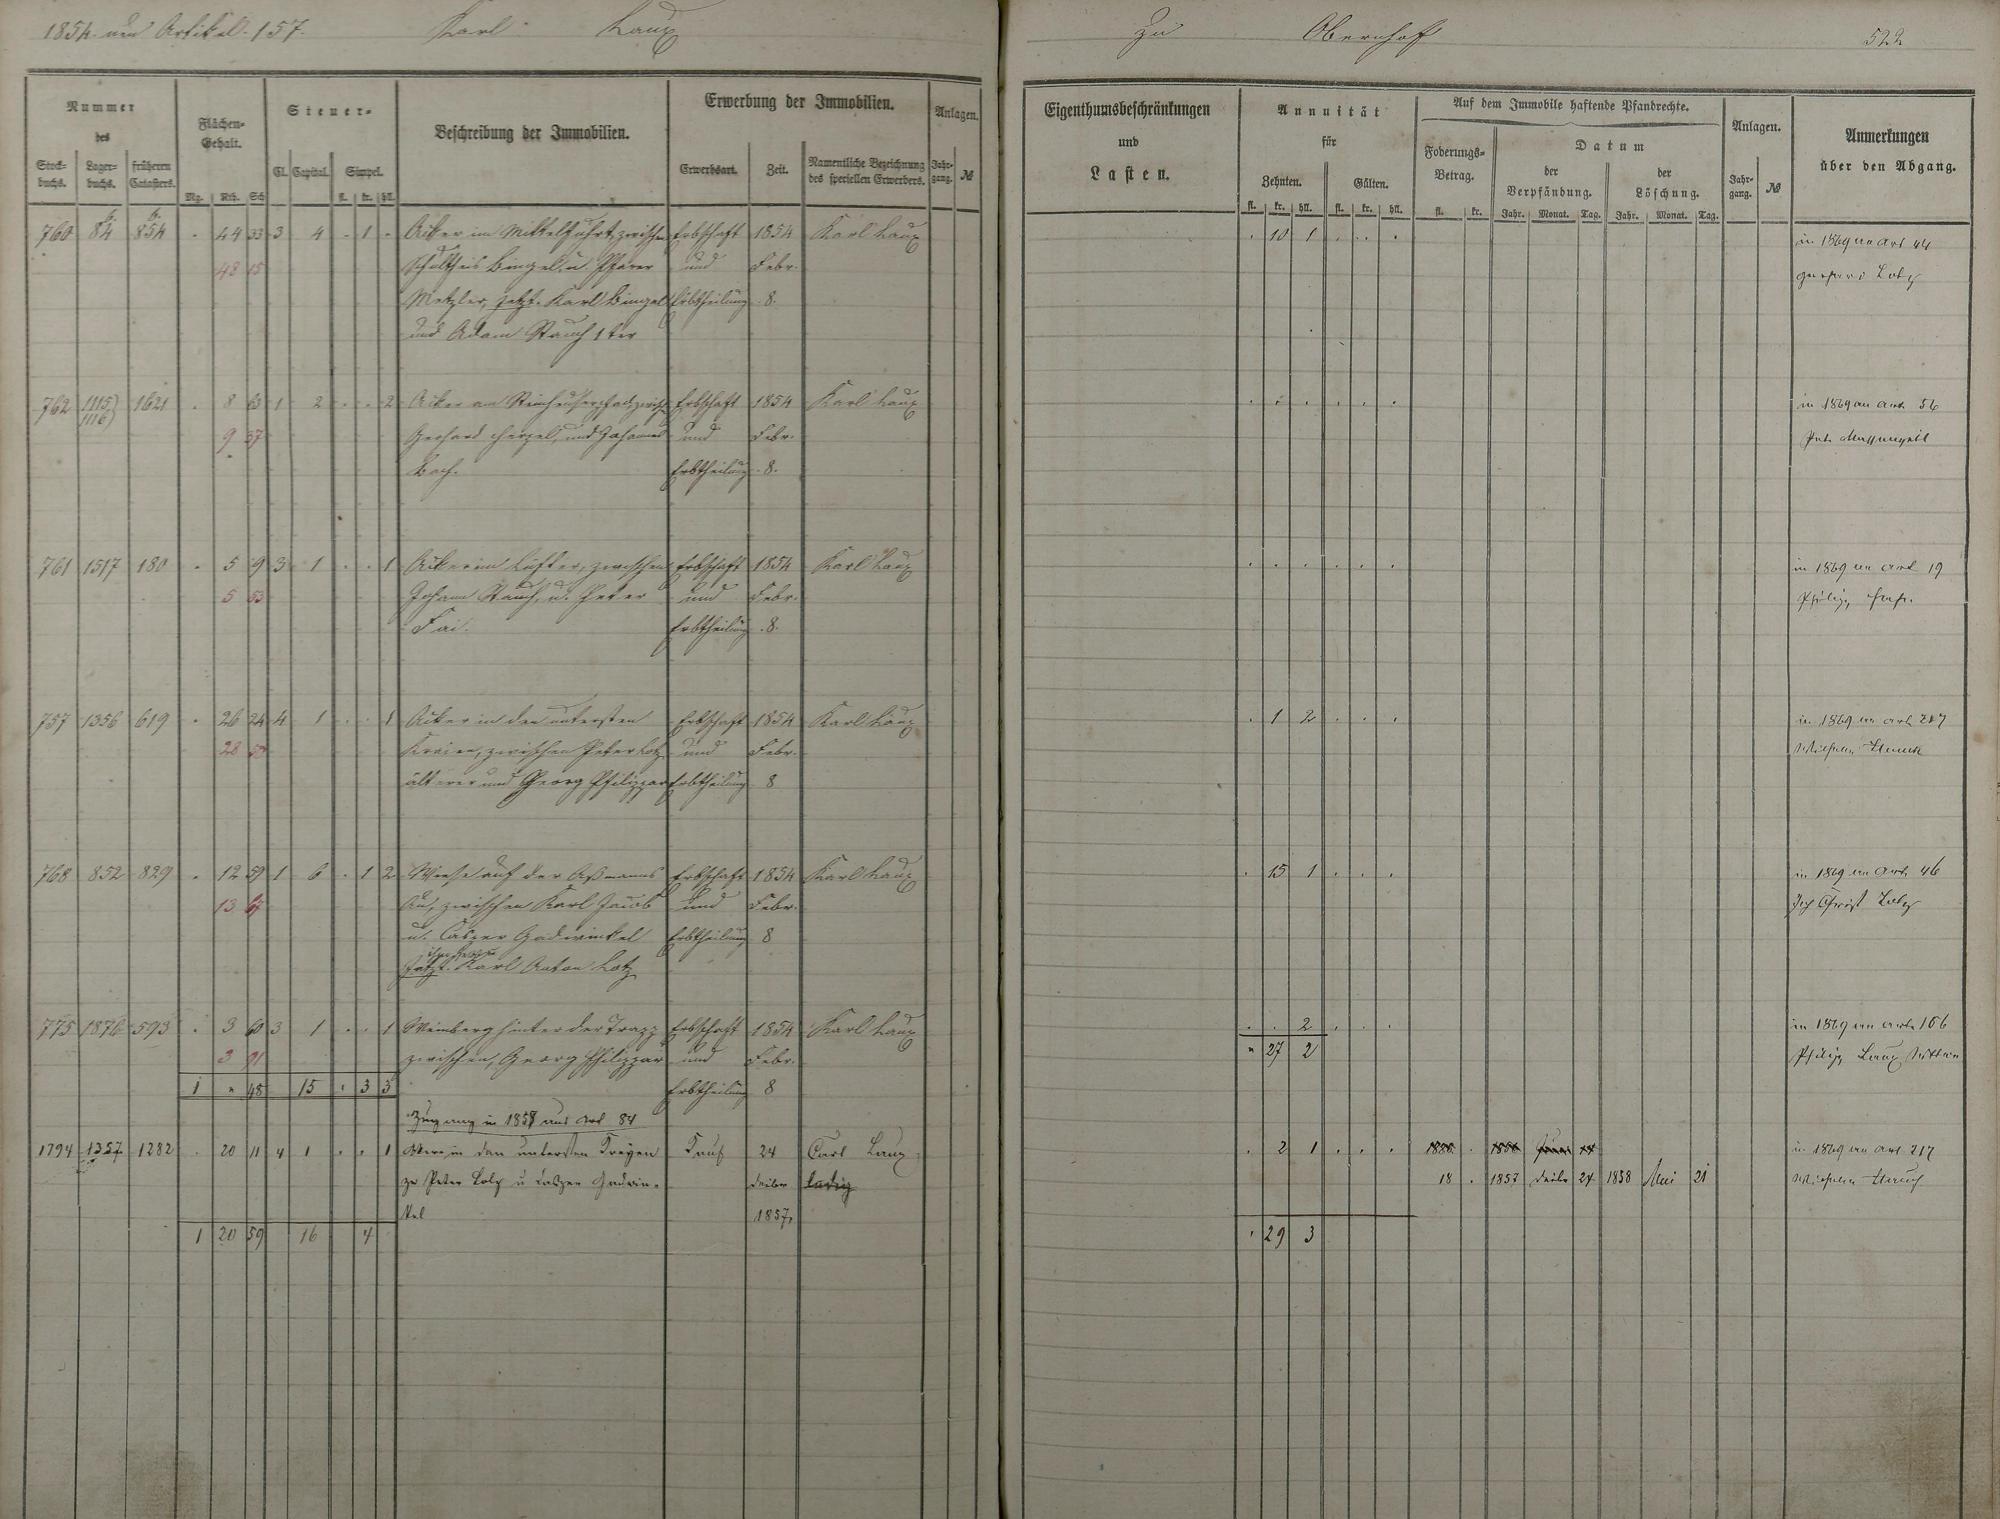 1854. Artikel 157. Karl Laux
zu Obernhof 522
Nummer des
Stock-buchs. Lager-buchs. früheren Catasters.
Flächen-Gehalt.
Mg. Rth. Sch
Steuer-
Cl. Capital. Simpel.
fl. kr. hll.
Beschreibung der Immobilien.
Erwerbung der Immobilien.
Erwerbsart. Zeit. Namentliche Bezeichnung des speziellen Erwerbers.
Anlagen.
Jahr-gang. №
Eigenthumsbeschränkungen
und
Lasten.
Annuität
für
Zehnten. Gülten.
fl. kr. hll. fl. kr. hll.
Auf dem Immobile haftende Pfandrechte.
Foderungs-Betrag.
fl. kr.
Datum
der Verpfändung. der Löschung.
Jahr. Monat. Tag. Jahr. Monat. Tag.
Anlagen.
Jahr-gang. №
Anmerkungen
über den Abgang.
760 84 854 . 44 33 3 4 . 1 . Acker im zwischen Erbschaft 1854 Karl Laux . 10 1 . . . in 1869 an Art 44
48 15 Schultheis Bingel u. Pfarrer und Febr. Lotz
Metzler, jetzt Karl Bingel Erbtheilung 8.
und Adam Stauch 1ter
762 1115 1116 1621 . 8 63 1 2 . . 2 Acker am Erbschaft 1854 Karl Laux . . . . . . in 1869 an Art 56
9 37 Gerhard und Johannes und Febr.
Bach. Erbtheilung 8.
761 1517 180 . 5 9 3 1 . . 1 Acker im zwischen Erbschaft 1854 Karl Laux . . . . . . in 1869 an Art 19
5 53 Johann Stauch, u. Peter und Febr. Philipp
Fai. Erbtheilung 8.
757 1356 619 . 26 24 4 1 . . 1 Acker in den untersten Erbschaft 1854 Karl Laux . 1 2 . . . in 1869 an Art 217
28 zwischen Peter Lotz und Febr. Wilhelm
älterer und Georg Philippar Erbtheilung 8
768 852 829 . 12 59 1 6 . 1 2 Wiese auf der Aßmanns Erbschaft 1854 Karl Laux . 15 1 . . . in 1869 an Art 46
13 Au, zwischen Karl Jacob und Febr. Christ Lotz
u. Casper Gadwinkel Erbtheilung 8
Jetzt. Karl Anton Lotz
775 1876 593 . 3 60 3 1 . . 1 Weinberg hinter der Trapp Erbschaft 1854 Karl Laux . . 2 . . . in 1869 an Art 166
3 91 zwischen, Georg Philippar und Febr. " 27 2 Philipp Laux
1 " 48 15 . 3 3 Erbtheilung 8
Zugang in 1858 aus Art 84
1794 1357 1282 . 20 11 4 1 . . 1 in den untersten Kreyen Kauf 24 Carl Laux . 2 1 . . . in 1869 an Art 217
zw Peter Lotz u Casper Gadwin- ledig 18 . 1857 24 1858 Mai 21 Wilhelm
kel 1857.
1 20 59 16 4 . 29 3